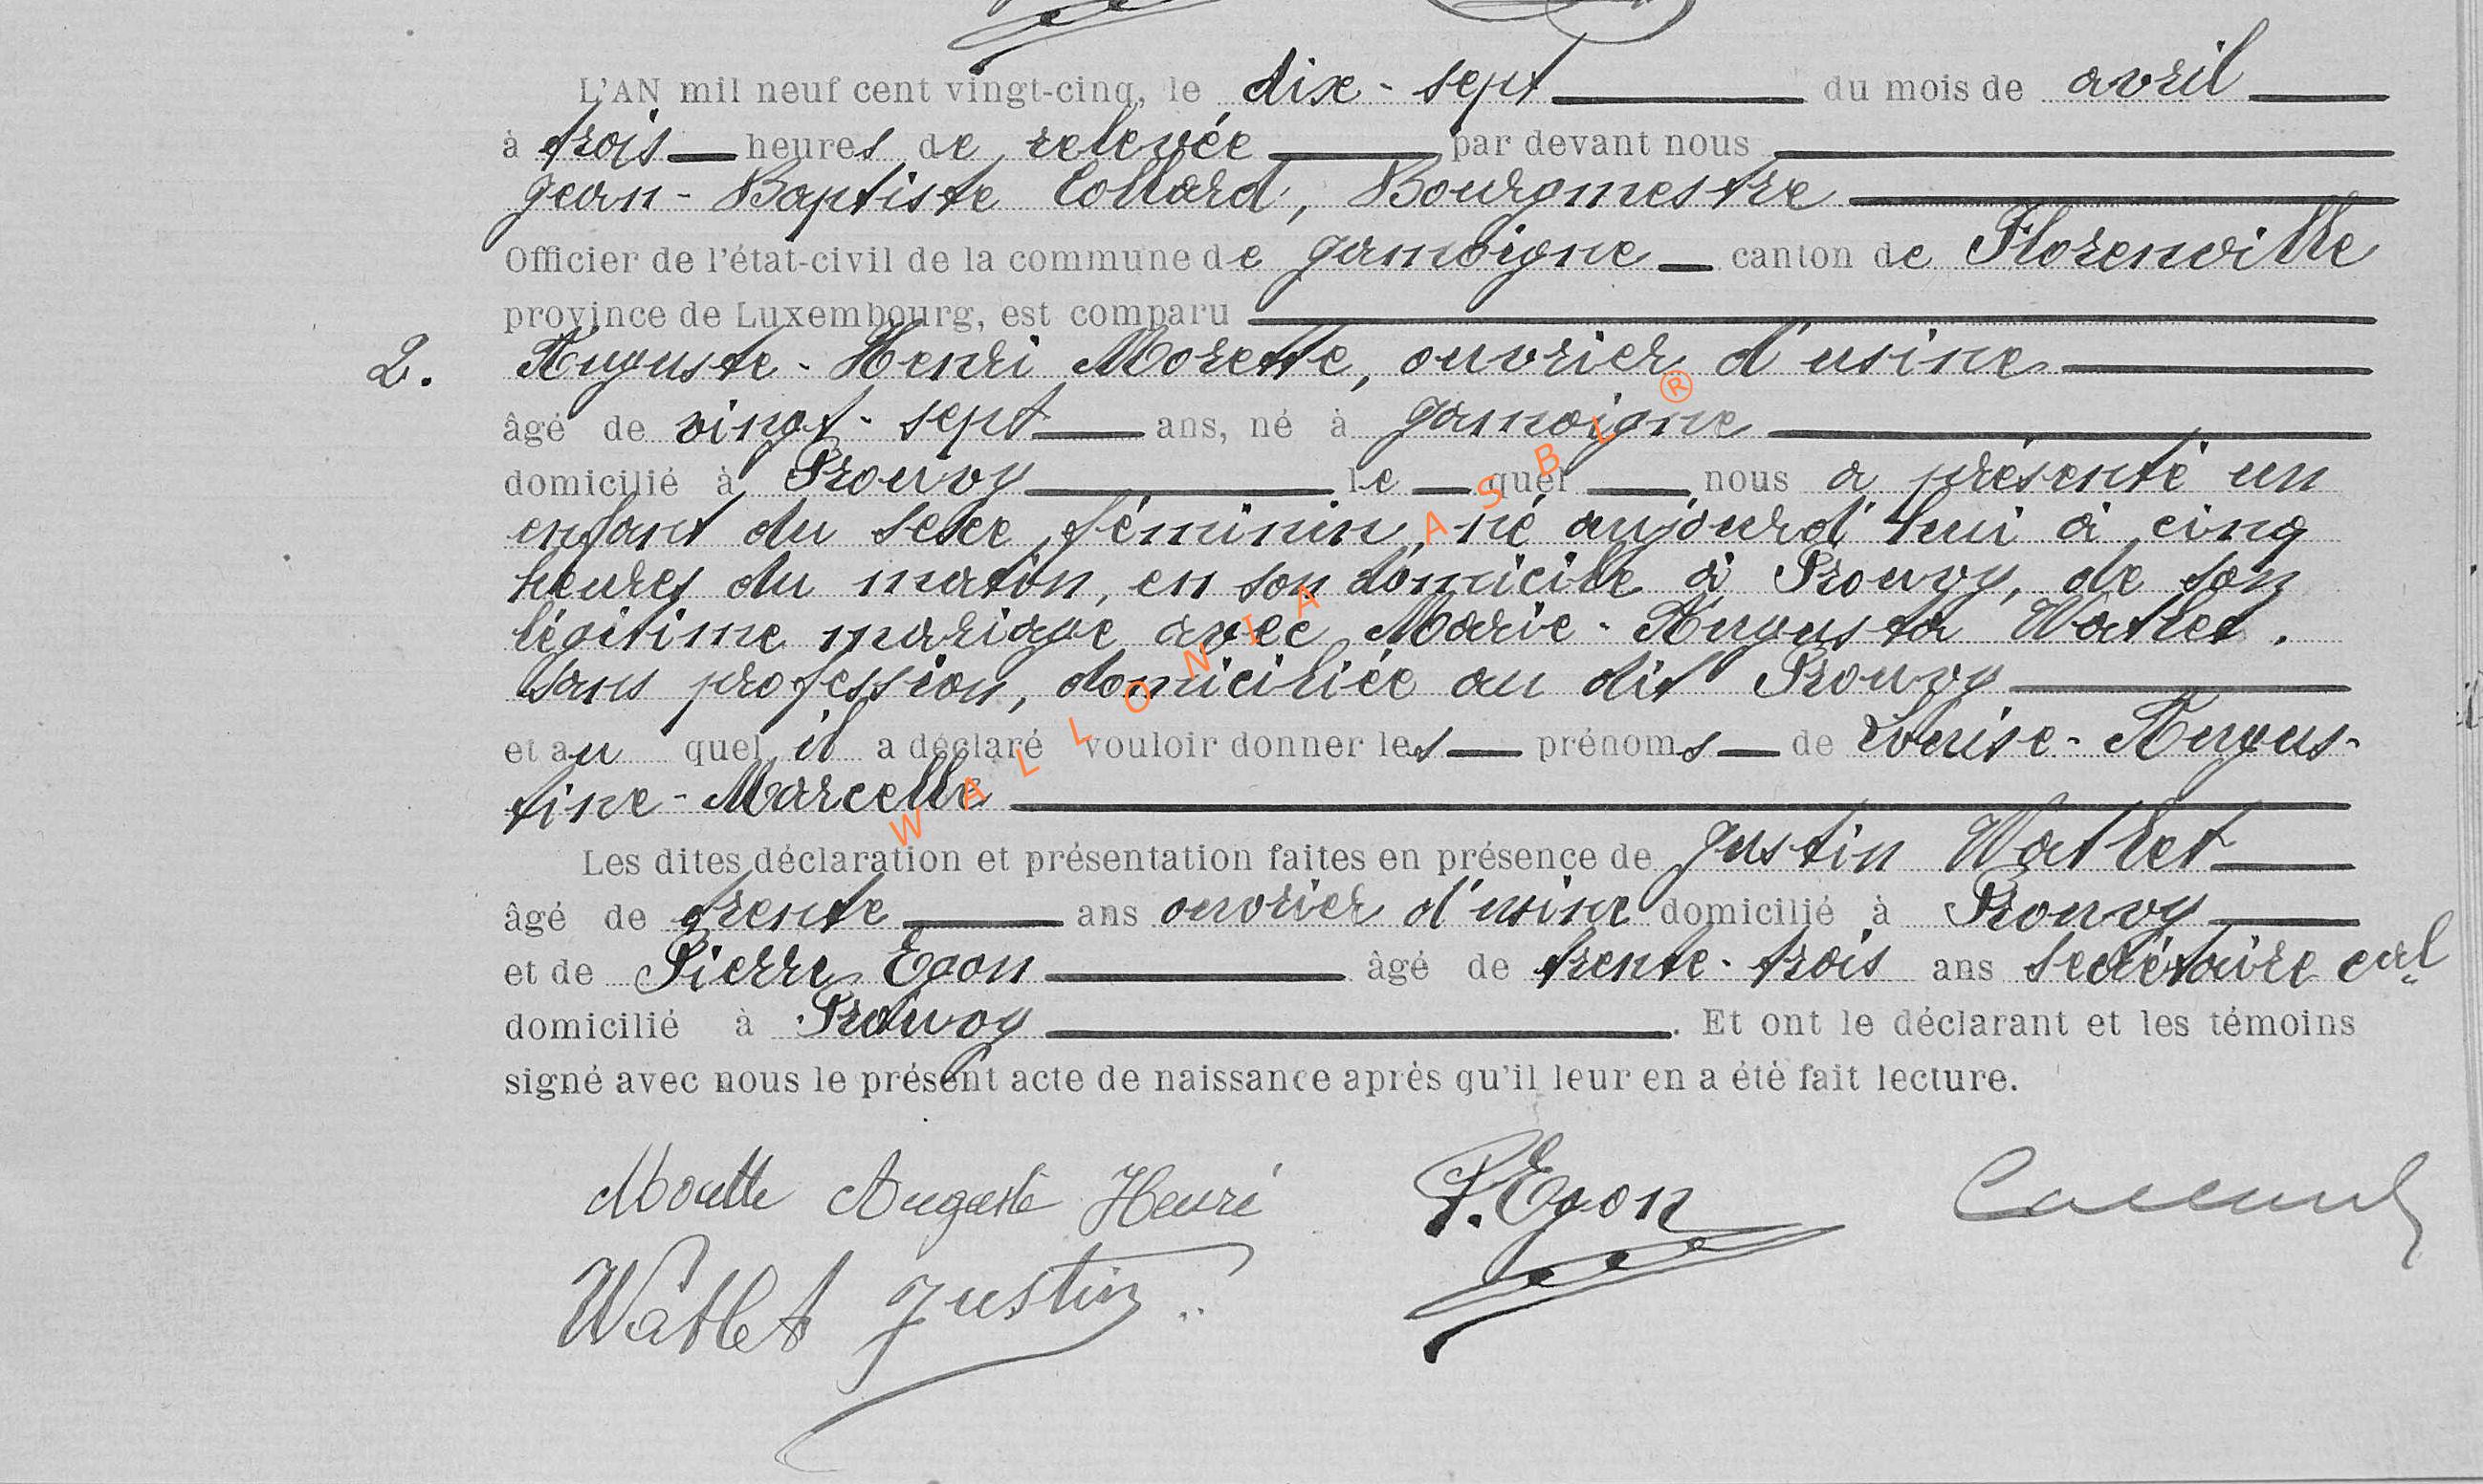 L'AN mil neuf cent vingt-cinq, le dix-sept du mois de avril
à trois heures de relevée par devant nous
Jean-Baptiste Collard, Bourgmestre
Officier de l'état-civil de la commune de Jamoigne canton de Florenville
province de Luxembourg, est comparu
2. Auguste-Henri Morette, ouvrier d'usine
âgé de vingt-sept ans, né à Jamoigne
domicilié à Prouvy lequel nous a présenté un
enfant du sexe féminin, né aujourd'hui à cinq
heures du matin, en son domicile à Prouvy, de son
légitime mariage avec Marie-Augusta Watlet,
sans profession, domiciliée au dit Prouvy
et auquel il a déclaré vouloir donner les prénoms de Louise-Augus-
tine-Marcelle
Les dites déclaration et présentation faites en présence de Justin Watlet
âgé de trente ans ouvrier d'usine domicilié à Prouvy
et de Pierre Egon âgé de trente-trois ans secrétaire cal
domicilié à Prouvy. Et ont le déclarant et les témoins
signé avec nous le présent acte de naissance après qu'il leur en a été fait lecture.
Morette Auguste Henri P. Egon Collard
Watlet Justin
WALLONIA ASBL ®